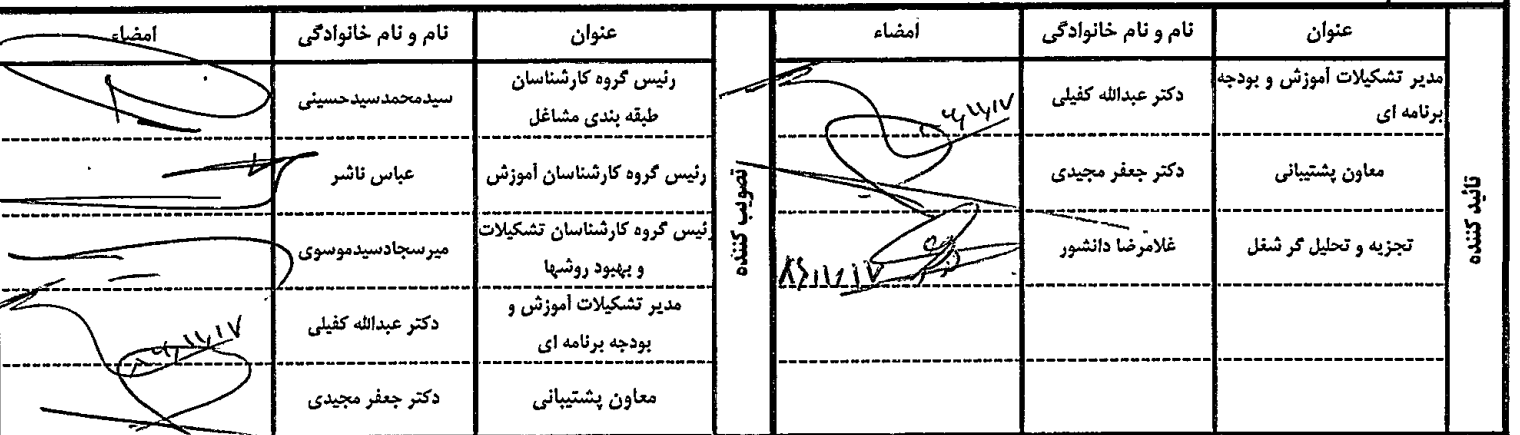 تائید کننده
عنوان
نام و نام خانوادگی
امضاء
مدیر تشکیلات آموزش و بودجه
برنامه ای
دکتر عبدالله کفیلی
معاون پشتیبانی
دکتر جعفر مجیدی
تجزیه و تحلیل گر شغل
غلامرضا دانشور
تصویب کننده
عنوان
نام و نام خانوادگی
امضاء
رئیس گروه کارشناسان
طبقه بندی مشاغل
سیدمحمدسیدحسینی
رئیس گروه کارشناسان آموزش
عباس ناشر
رئیس گروه کارشناسان تشکیلات
و بهبود روشها
میرسجادسیدموسوی
مدیر تشکیلات آموزش و
بودجه برنامه ای
دکتر عبدالله کفیلی
معاون پشتیبانی
دکتر جعفر مجیدی